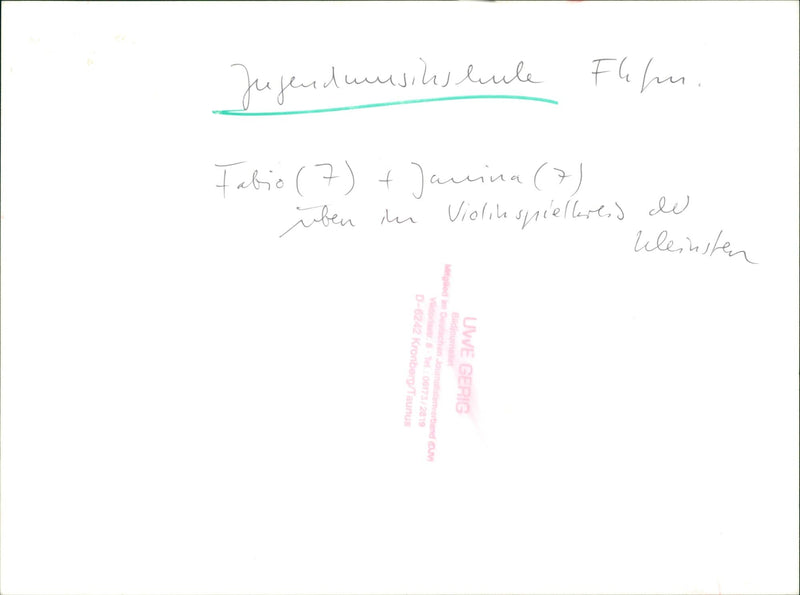 Jugendmusikschule Ffm.
Fabio (7) + Janina (7)
üben im Violinspielkreis der
Kleinsten
UWE GERIG
Bildjournalist
Mitglied im Deutschen Journalistenverband (DJV)
Viktoriastr. 8 Tel.: 06173/2819
D-6242 Kronberg/Taunus